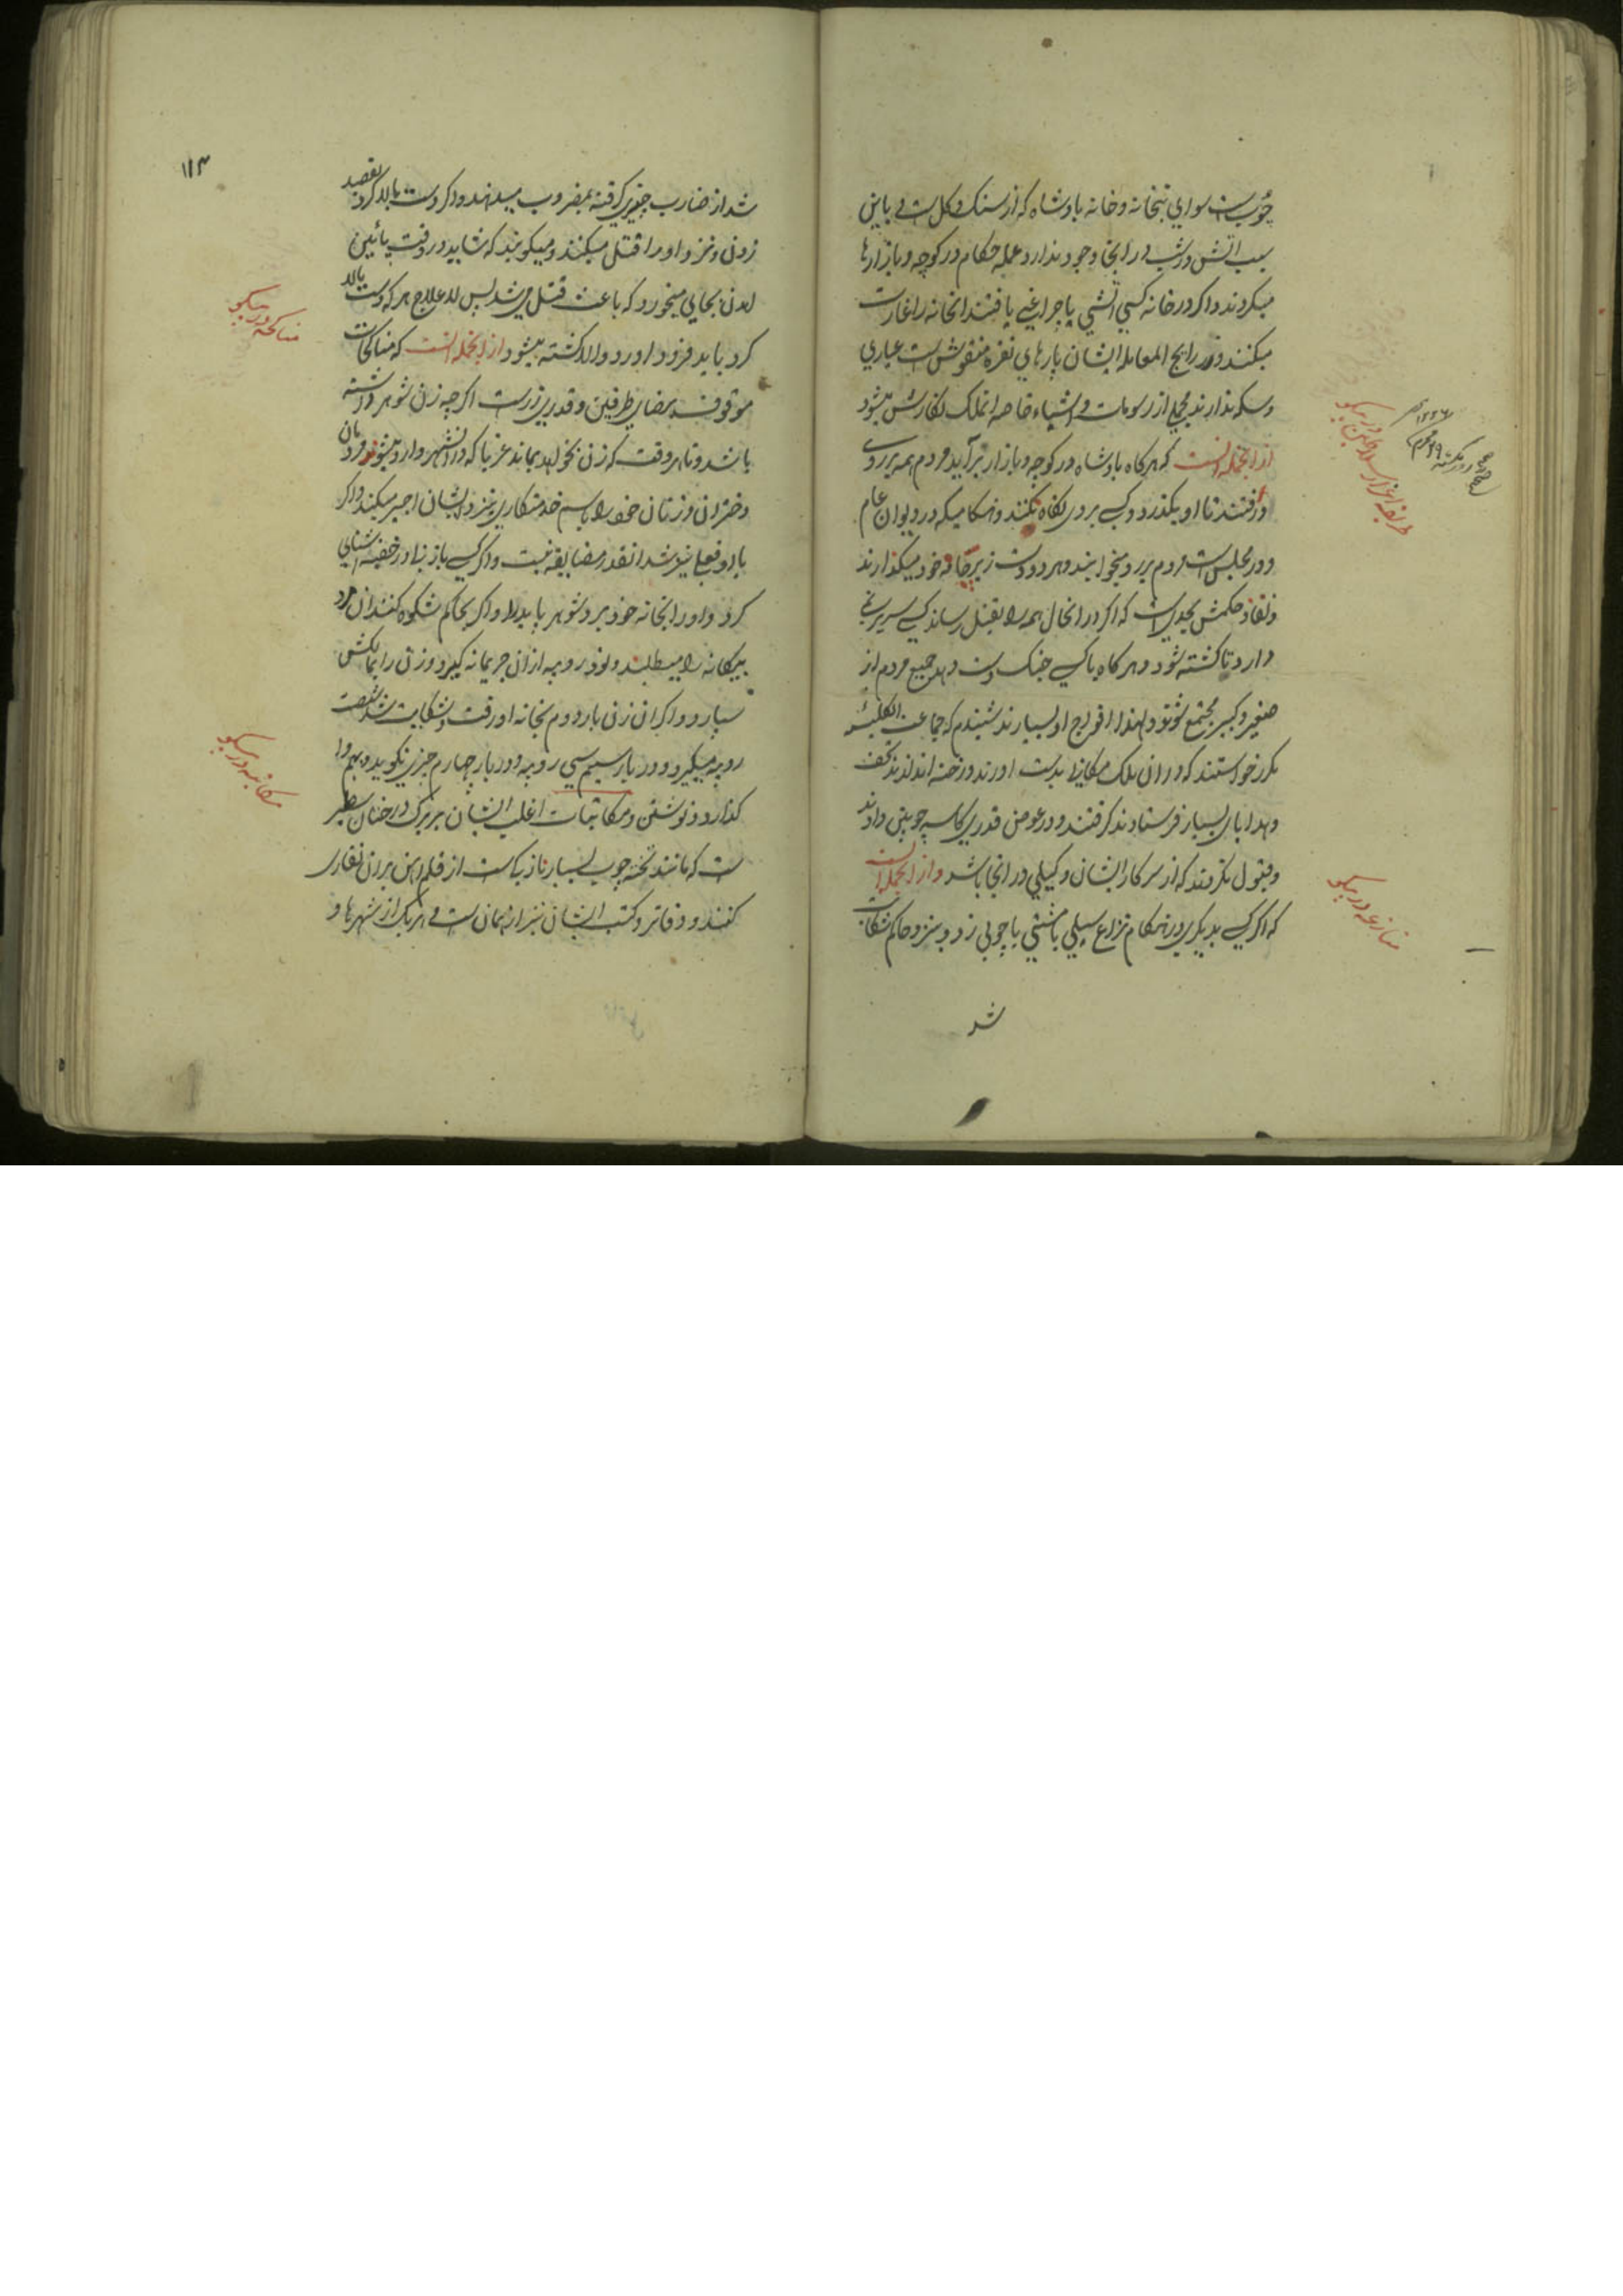 چوبست سوای بتخانه و خانه پادشاه که از سنک و کل است و باین
سبب اتش در شب در انجا وجود ندارد و عمله حکام در کوچه و بازارها
میکردند و اکر در خانه کسی اتشی یا چراغی یافتند انخانه را غارت
میکنند و زر رایج المعامله ایشان پارهای نقره منقوش است عیاری
و سکه ندارند مجملی از رسومات و اشیاء خاصه انملک نکارش میشود
از انجمله انست که هرکاه پادشاه در کوچه و بازار برآید مردم همه بر روی
درفتند تا او بکذرد و کسی بروی نکاه نکند و هنکامیکه در دیوان عام
و در مجلس است مردم بر رو میخوابند و هر دو دست زیر خود میکذارند
و نفاذ حکمش بحدیست که اکر در انحال همه را بقتل رساند کسی سر بر نمی
دارد تا کشته شود و هر کاه با کسی جنک دست دهد جمیع مردم از
صغیر و کبیر مجتمع شوند و لهذا افواج او بسیارند شنیدم که جماعت انکلیش
مکرر خواستند که در ان ملک مکانی بدست اورند و رخنه اندازند تحف
و هدایای بسیار فرستادند کرفتند و در عوض قدری کاسه چوبین دادند
و قبول نکردند که از سرکار ایشان وکیلی در انجا باشد و از انجمله است
که اکر کسی بدیکری در هنکام نزاع سیلی یا مشتی یا چوبی زد و نزد حاکم شکایت
شد
منازعه در پیکو
۱۱۳
شد از ضارب چیزی کرفته بمضروب میدهند و اکر دست بالا کرد بقصد
زدن و نزد او را قتل میکنند و میکویند که شاید در وقت پائین
امدن بجایی میخورد که باعث قتل می شد پس لا علاج هر که دست بالا
کرد باید فرود اورد و الا کشته میشود از انجمله انست که مناکحات
موقوف برضای طرفین و قدری زر است اکر چه زن شوهر داشته
باشد و تا هر وقت که زن بخواهد بماند غربا که در انشهر وارد میشوند مردمان
دختران و زنان خود را باسم خدمتکاری نزد ایشان اجیر میکنند و اکر
با او فعلی نیز شد انقدر مضایقه نیست و اکر کسی با زنی در خفیه اشنایی
کرد و او را بخانه خود برد شوهر یا پدر او اکر بحاکم شکوه کنند ان مرد
بیکانه را میطلبند و نود روپیه از ان جریمانه کیرد و زن را بمالکش
سپارد و اکر ان زن بار دوم بخانه او رفت و شکایت شد شصت
روپیه میکیرد و در بار سیم سی روپیه و در بار چهارم چیزی نکوید و بهم وا
کذارد و نوشتن و مکاتبات اغلب ایشان بر برک درختان سطبر
ست که مانند تخته چوب بسیار نازک است از قلم اهن بر ان نقاری
کنند و دفاتر و کتب ایشان نیز از همان است و هر یک از شهرها و
مناکحه در پیکو
مکاتبه در پیکو